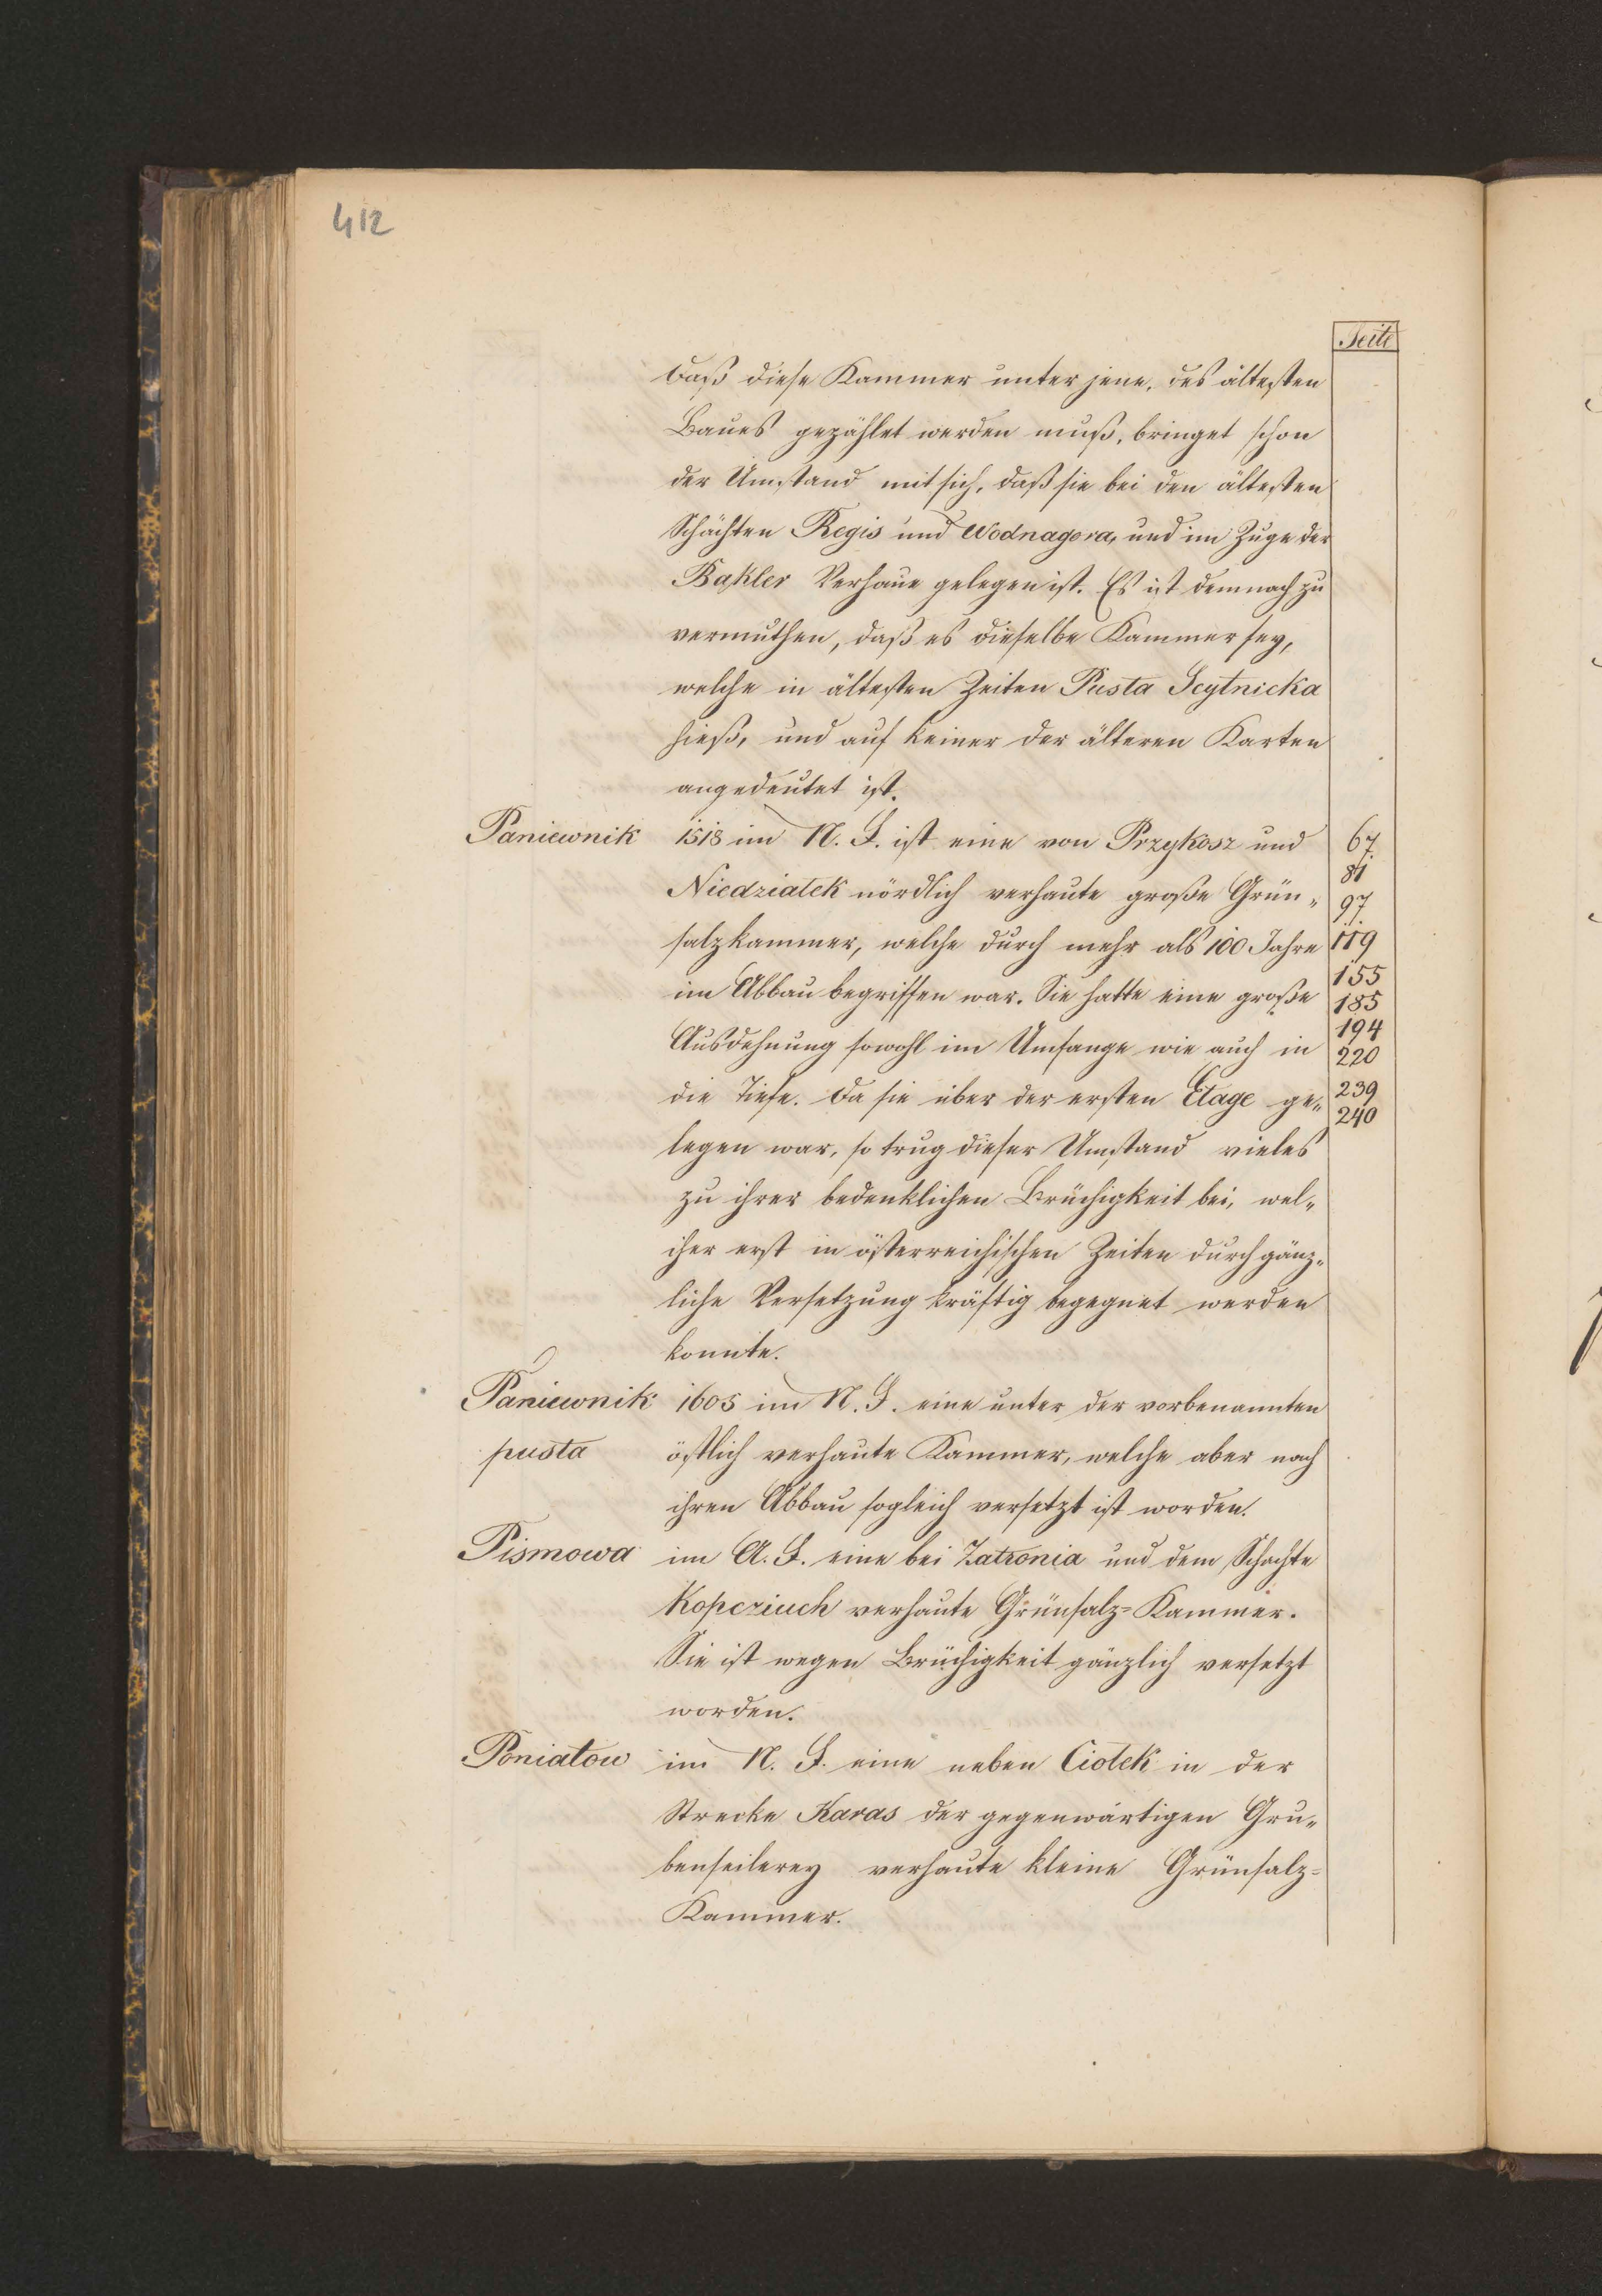 412
Seite
daß diese Kammer unter jene, des ältesten
Baues gezählet werden muß, bringet schon
der Umstand mit sich, daß sie bei den ältesten
Schächten Regis und Wodnagora, und im Zuge der
Bakler Verhaue gelegen ist. Es ist demnach zu
vermuthen, daß es dieselbe Kammer sey,
welche in ältesten Zeiten Pusta Scytnicka
hieß, und auf keiner der älteren Karten
angedeutet ist.
Paniewnik 1518 im N. F. ist eine von Przykosz und 67.
Niedziatek nördlich verhaute große Grün- 81 97.
salzkammer, welche durch mehr als 100 Jahre 119
im Abbau begriffen war. Sie hatte eine große 155 185
Ausdehnung sowohl im Umfange wie auch in 194 220
die Tiefe. Da sie über der ersten Etage ge- 239 240
legen war, so trug dieser Umstand vieles
zu ihrer bedenklichen Brüchigkeit bei, wel-
cher erst in österreichischen Zeiten durch gänz-
liche Versetzung kräftig begegnet werden
konnte.
Paniewnik 1605 im N. F. eine unter der vorbenannten
pusta östlich verhaute Kammer, welche aber nach
ihren Abbau sogleich versetzt ist worden.
Pismowa im A. F. eine bei Zatronia und dem Schachte
Kopcziuch verhaute Grünsalz=Kammer.
Sie ist wegen Brüchigkeit gänzlich versetzt
worden.
Poniatow im N. F. eine neben Ciotek in der
Strecke Karas der gegenwärtigen Gru-
benseilerey verhaute kleine Grünsalz=
Kammer.